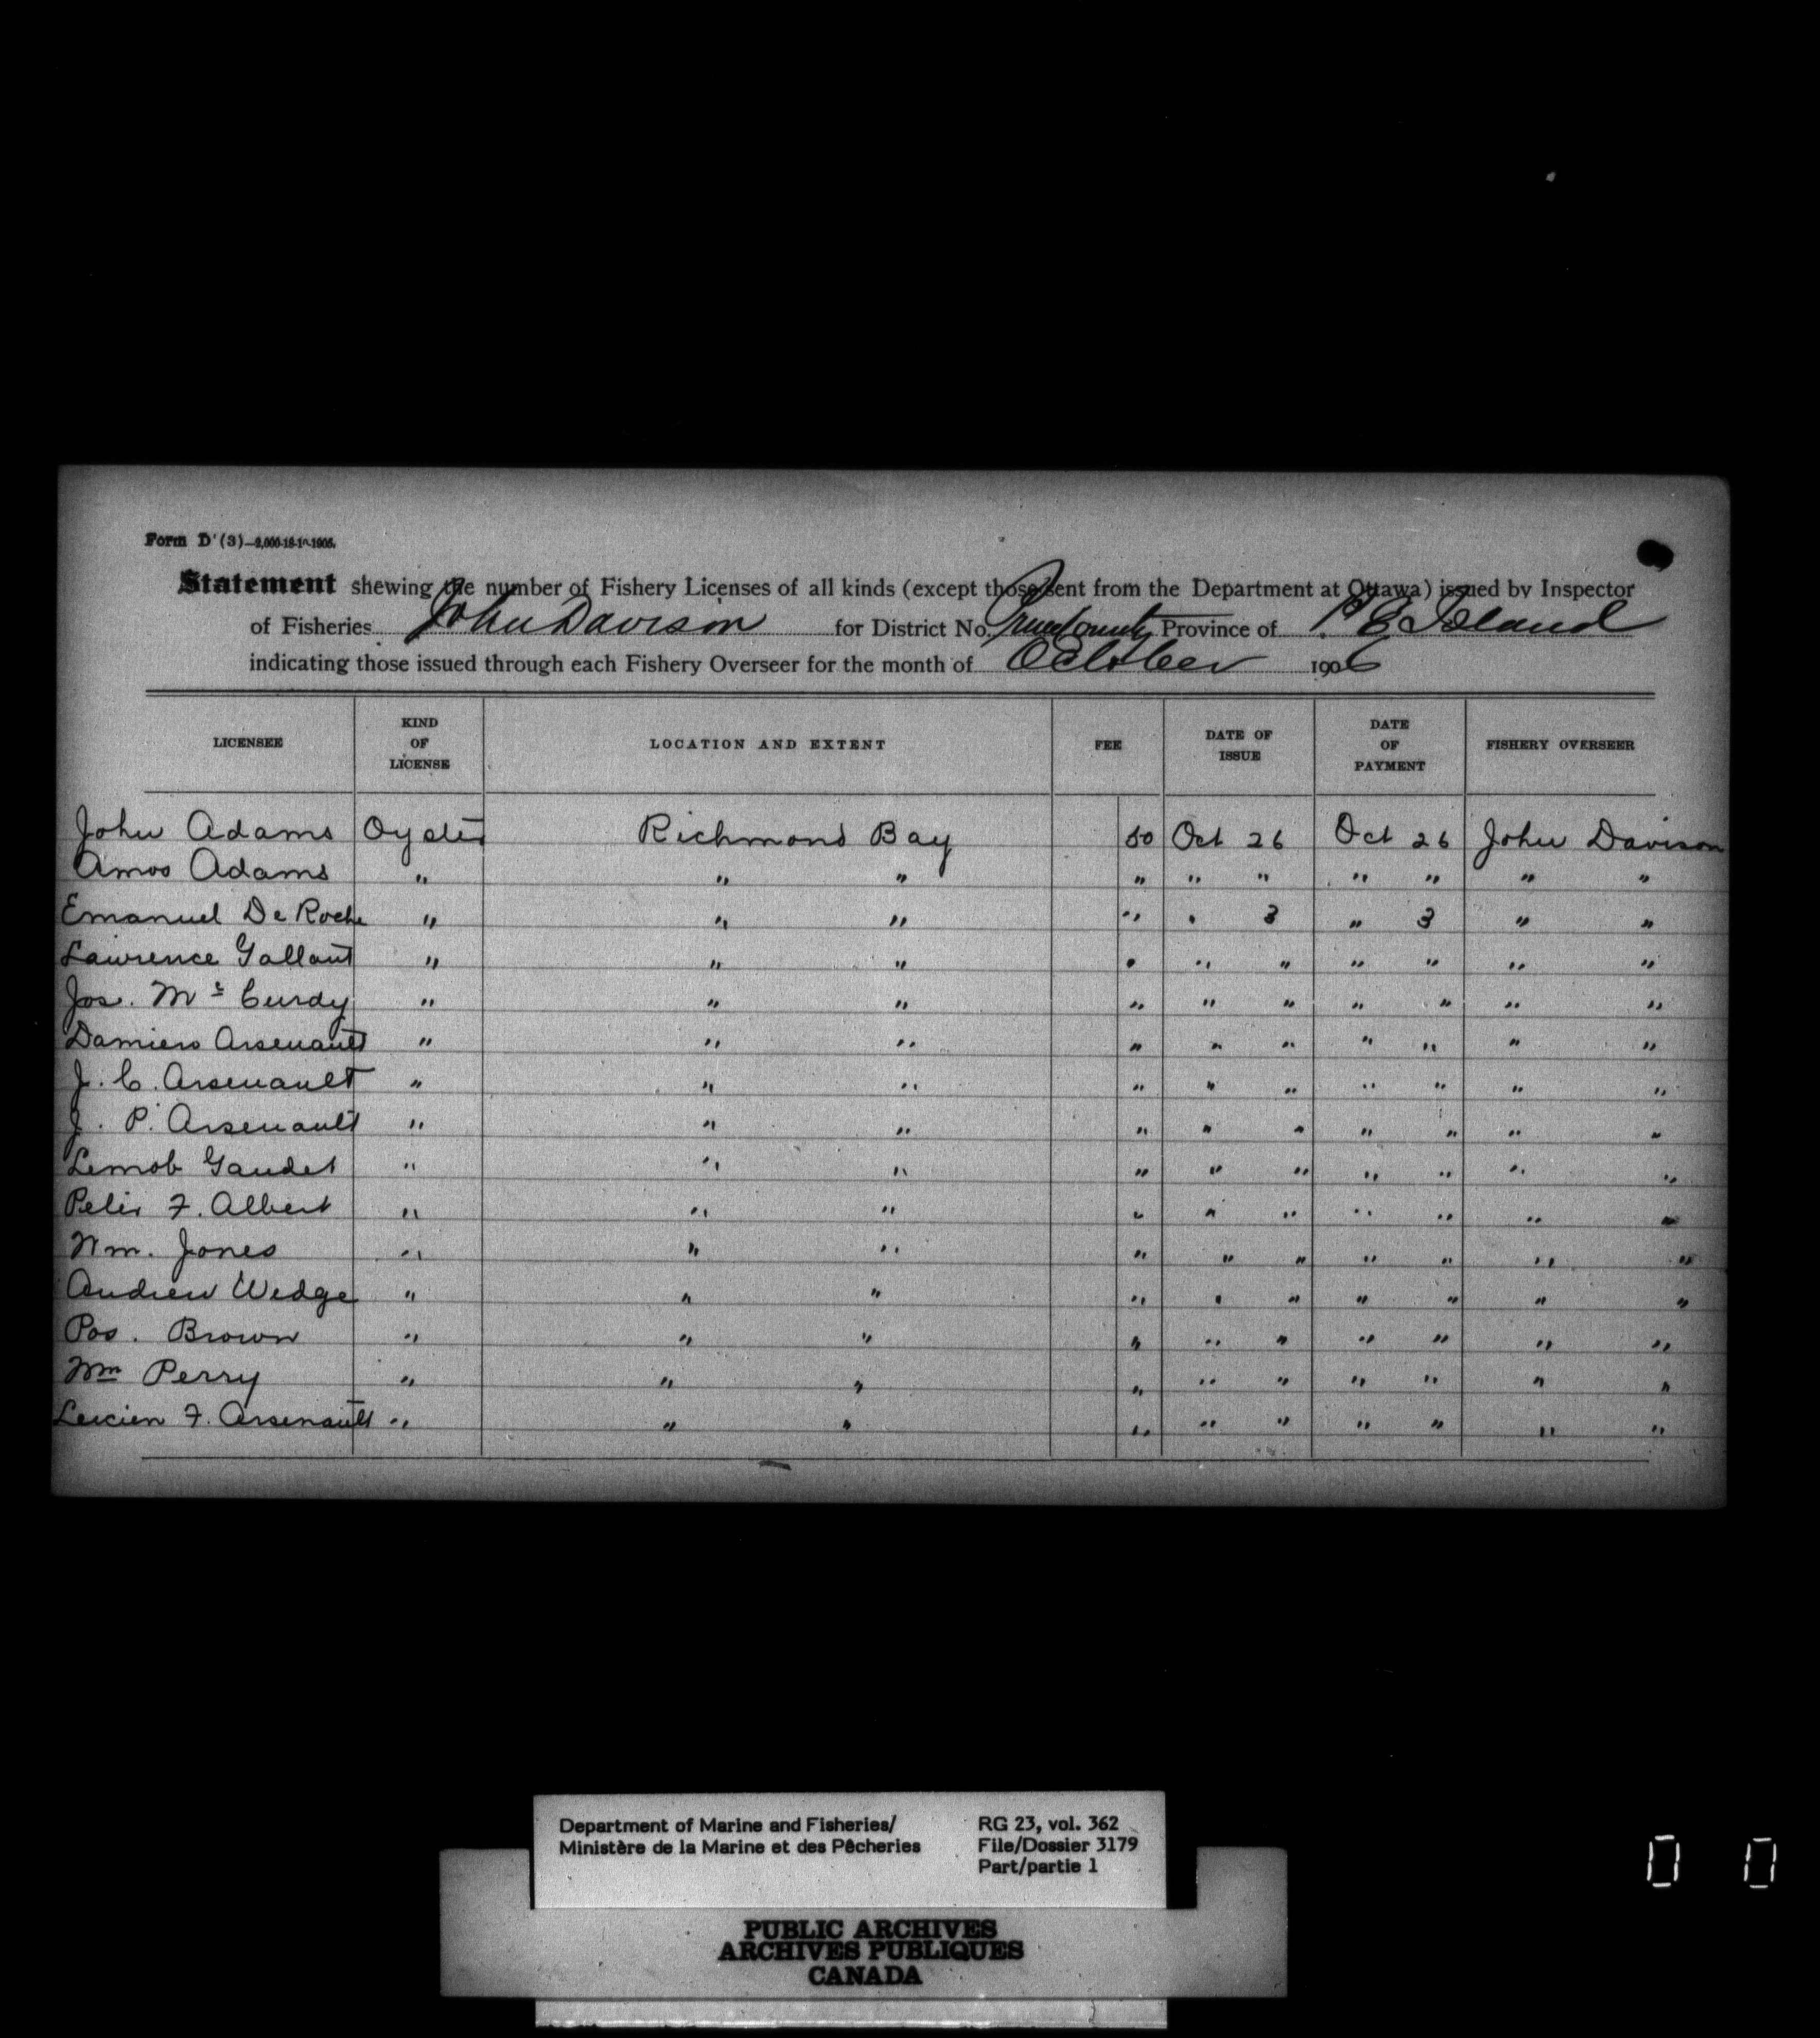 Form D (3)—2,000-18-10-1905.
Statement shewing the number of Fishery Licenses of all kinds (except those sent from the Department at Ottawa) issued by Inspector
of Fisheries John Davison for District No. Prince County Province of P. E. Island
indicating those issued through each Fishery Overseer for the month of October 1906
LICENSEE KIND OF LICENSE LOCATION AND EXTENT FEE DATE OF ISSUE DATE OF PAYMENT FISHERY OVERSEER
John Adams Oyster Richmond Bay 50 Oct 26 Oct 26 John Davison
Amos Adams " " " " " " " " " "
Emanuel De Roche " " " " " 3 " 3 " "
Lawrence Gallant " " " " " " " " " "
Jos. Mc Curdy " " " " " " " " " "
Damien Arsenault " " " " " " " " " "
J. C. Arsenault " " " " " " " " " "
J. P. Arsenault " " " " " " " " " "
Gaudet " " " " " " " " " "
Peter F. Albert " " " " " " " " " "
Wm. Jones " " " " " " " " " "
Andrew Wedge " " " " " " " " " "
Brown " " " " " " " " " "
Wm Perry " " " " " " " " " "
Lucien F. Arsenault " " " " " " " " " "
Department of Marine and Fisheries/ RG 23, vol. 362
Ministère de la Marine et des Pêcheries File/Dossier 3179
Part/partie 1
PUBLIC ARCHIVES
ARCHIVES PUBLIQUES
CANADA
0 0